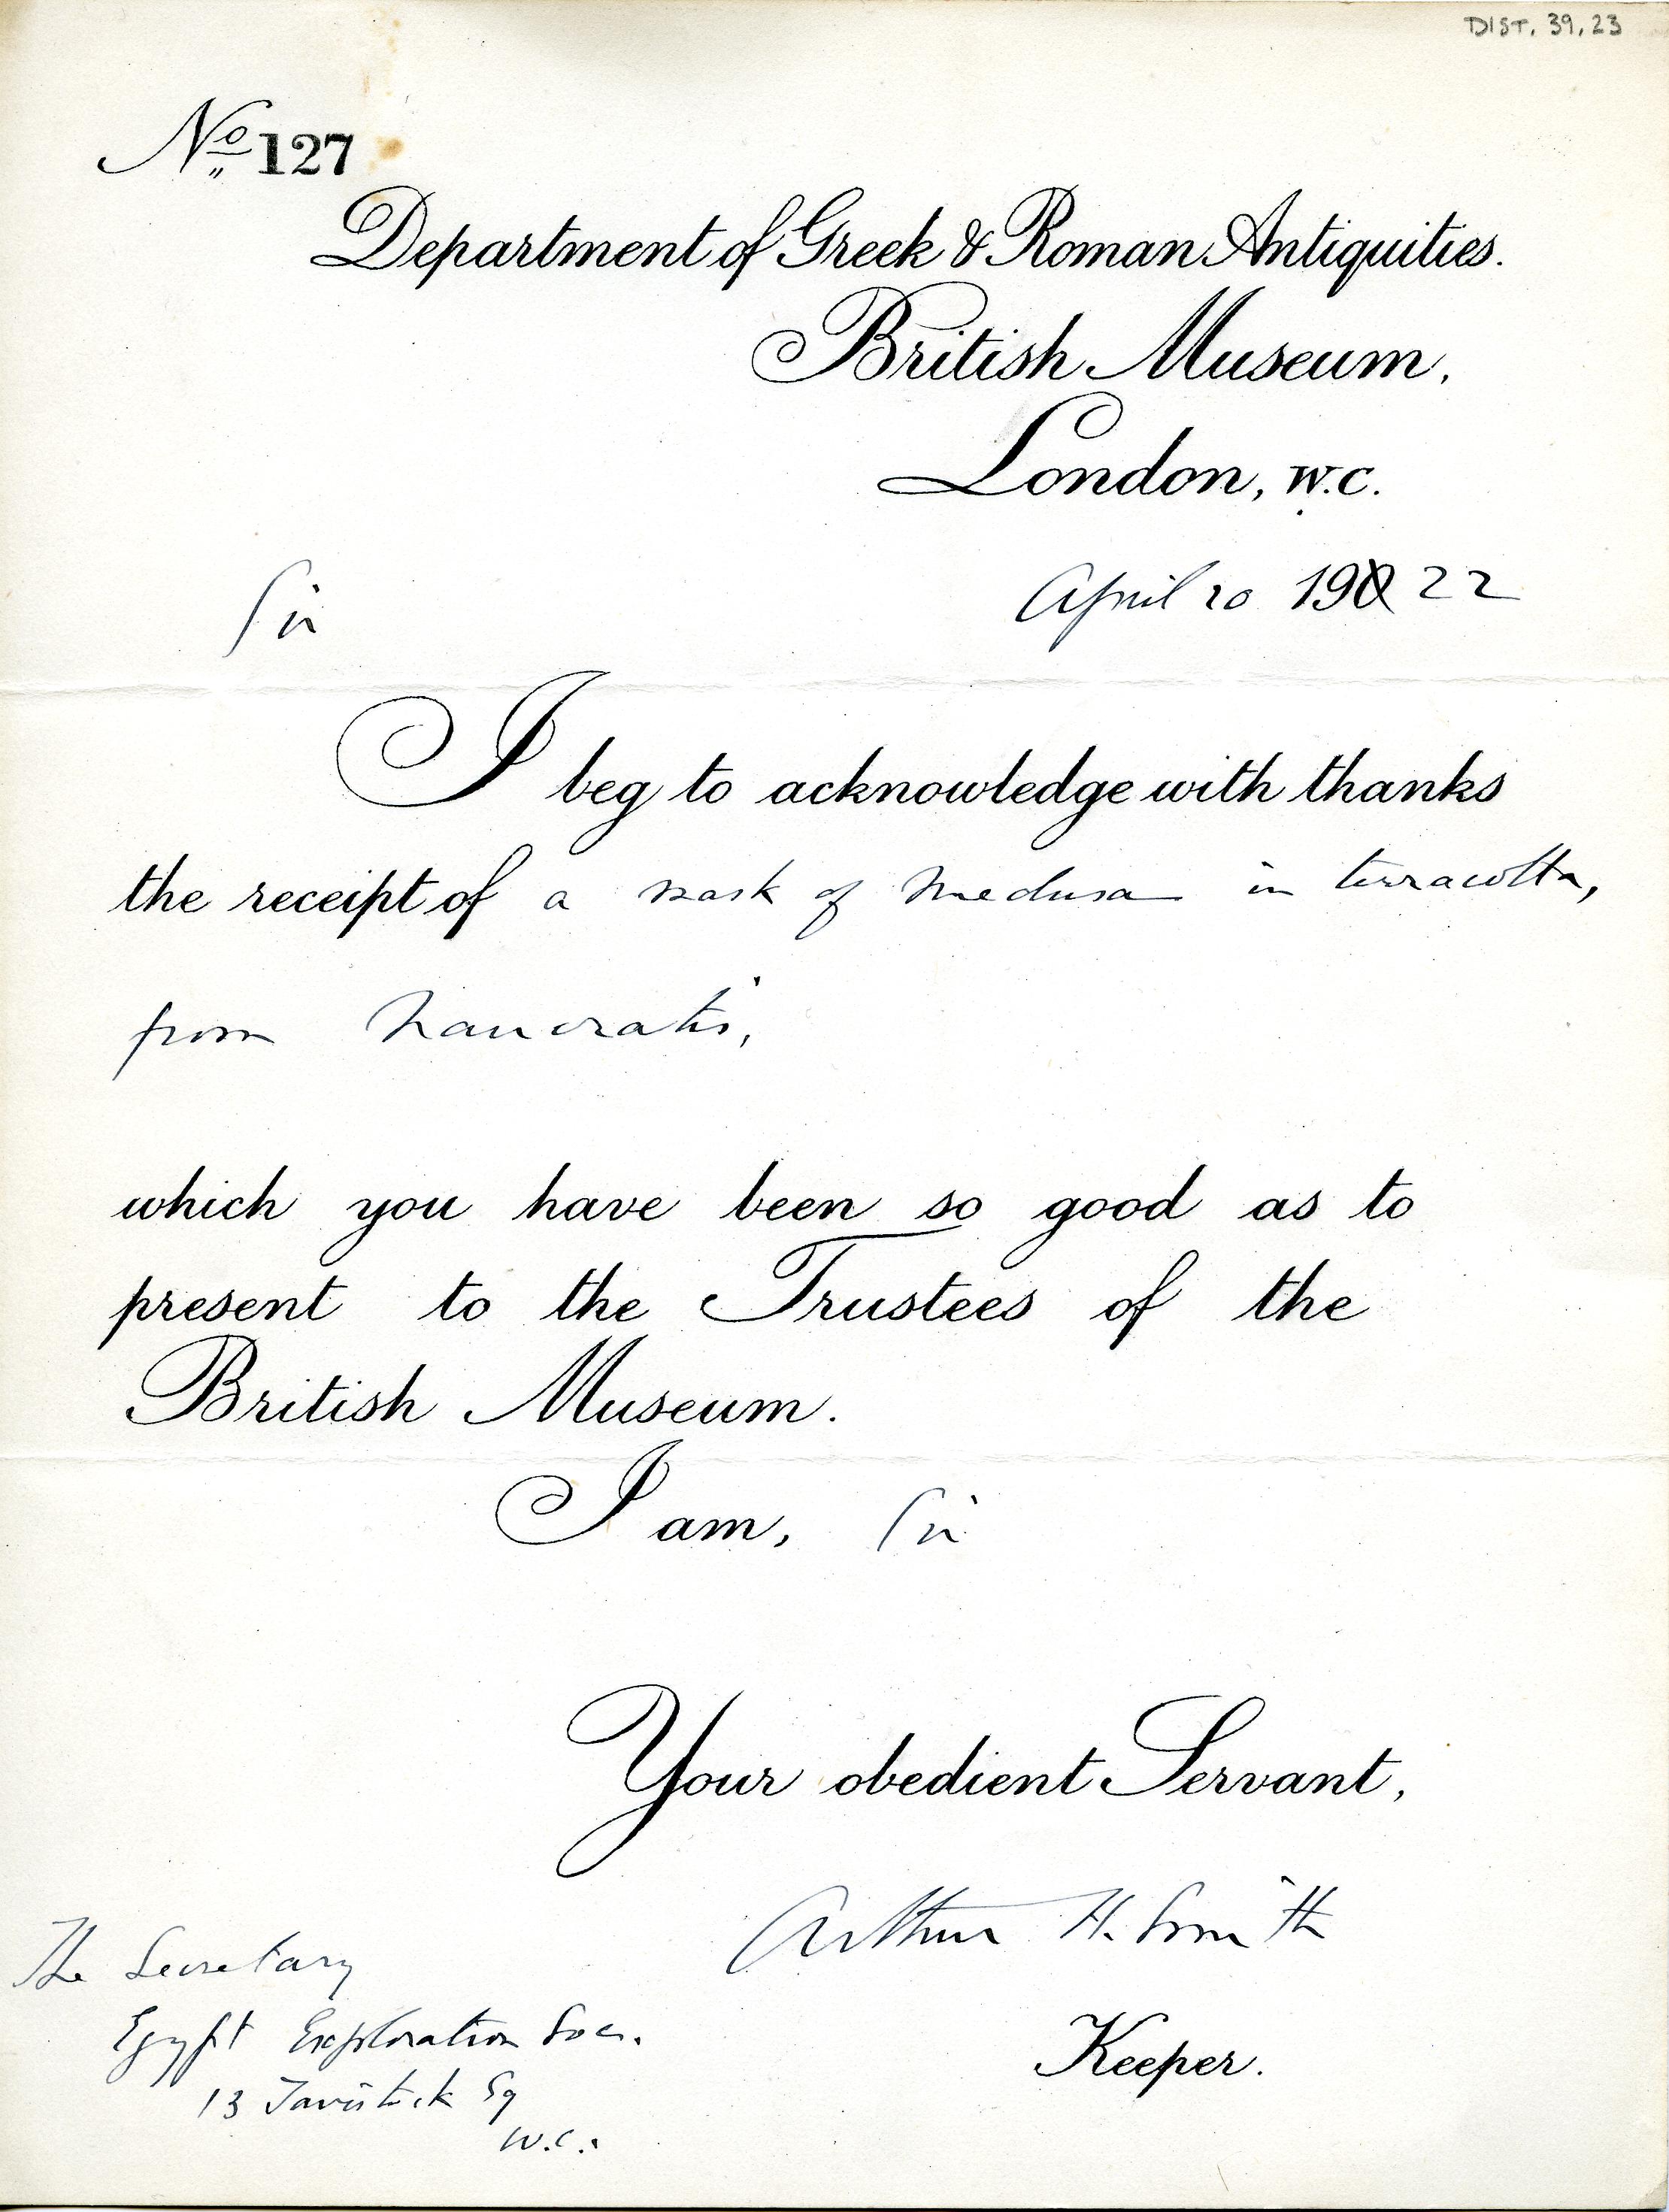 DIST. 39,23
No 127
Department of Greek & Roman Antiquities.
British Museum,
London, W.C.
April 20 190 22
Sir
I beg to acknowledge with thanks
the receipt of a mask of Medusa in terracotta,
from Naucratis,
which you have been so good as to
present to the Trustees of the
British Museum.
I am, Sir
Your obedient Servant,
Arthur H. Smith
Keeper.
The Secretary
Egypt Exploration Soc.
13 Tavistock Sq
W.C.